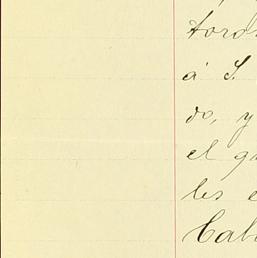 toro
á S.
do, y
el qu
les e
Cab